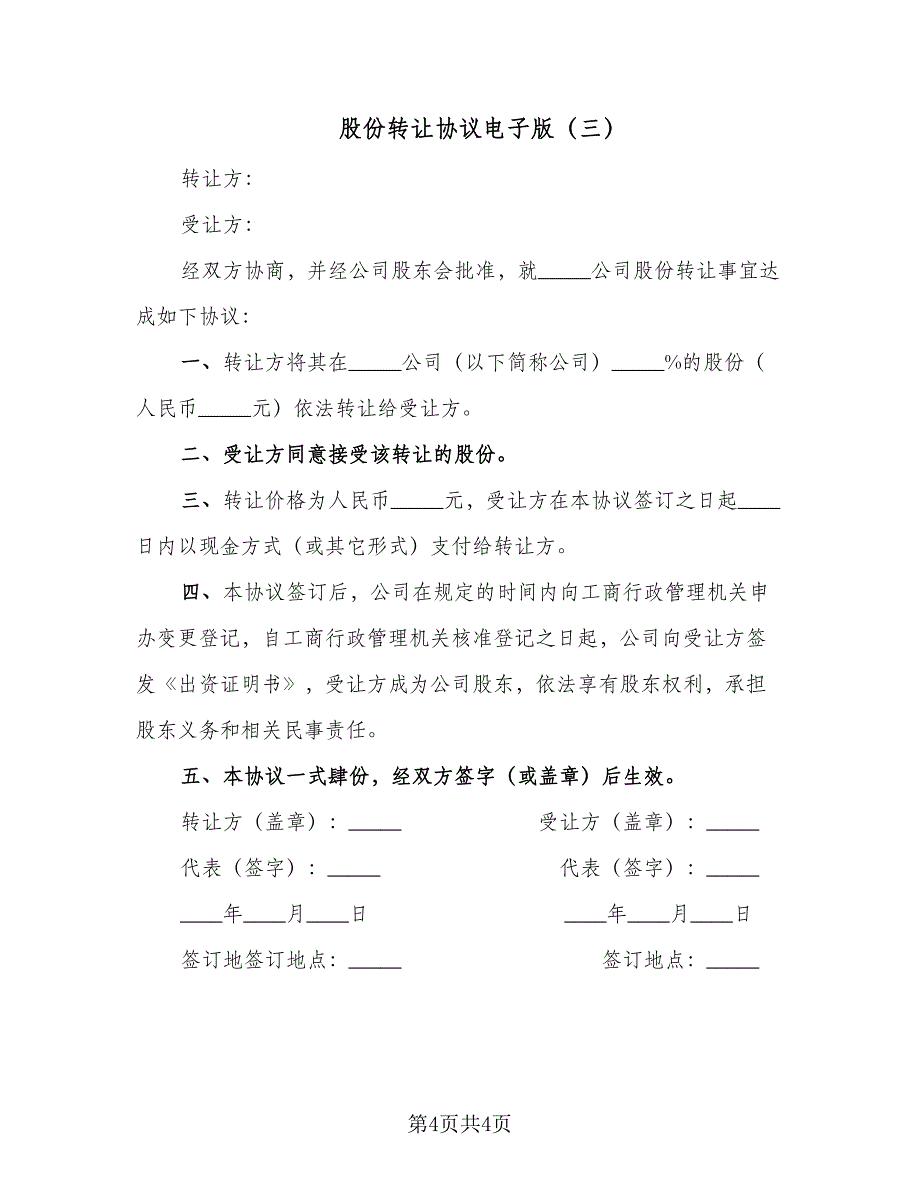 股份转让协议电子版（三）
转让方：
受让方：
经双方协商，并经公司股东会批准，就_____公司股份转让事宜达
成如下协议：
一、转让方将其在_____公司（以下简称公司）_____%的股份（
人民币_____元）依法转让给受让方。
二、受让方同意接受该转让的股份。
三、转让价格为人民币_____元，受让方在本协议签订之日起____
日内以现金方式（或其它形式）支付给转让方。
四、本协议签订后，公司在规定的时间内向工商行政管理机关申
办变更登记，自工商行政管理机关核准登记之日起，公司向受让方签
发《出资证明书》，受让方成为公司股东，依法享有股东权利，承担
股东义务和相关民事责任。
五、本协议一式肆份，经双方签字（或盖章）后生效。
转让方（盖章）：_____ 受让方（盖章）：_____
代表（签字）：_____ 代表（签字）：_____
____年____月____日 ____年____月____日
签订地签订地点：_____ 签订地点：_____
第4页共4页